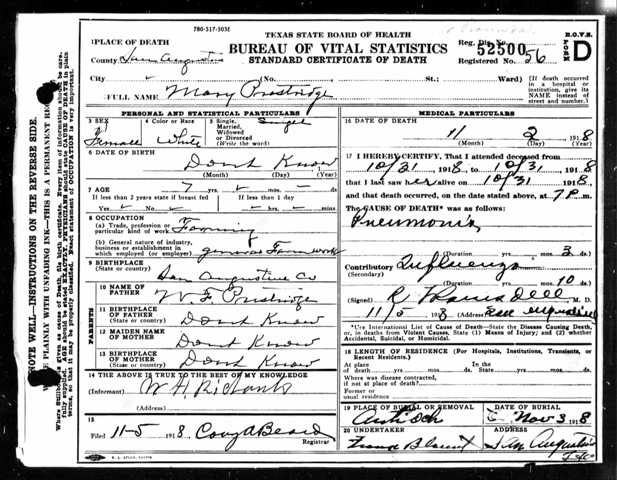 780-317-503M
TEXAS STATE BOARD OF HEALTH
BUREAU OF VITAL STATISTICS
STANDARD CERTIFICATE OF DEATH
R.O.V.S.
FORM D
1 PLACE OF DEATH
County San Augustine
Reg. Dis. No. 52500
Registered No. 56
City (No. St.; Ward)
(If death occurred in a hospital or institution, give its NAME instead of street and number.)
FULL NAME Mary Prostridge
PERSONAL AND STATISTICAL PARTICULARS
3 SEX Female
4 Color or Race White
5 Single, Married, Widowed or Divorced (Write the word) Single
6 DATE OF BIRTH Dont Know
(Month) (Day) (Year)
7 AGE 7
If less than 2 years state if breast fed
If less than 1 day
Yes No hrs. min.
8 OCCUPATION
(a) Trade, profession or particular kind of work Farming
(b) General nature of industry, business or establishment in which employed (or employer) general Farm work
9 BIRTHPLACE
(State or country) San Augustine Co
PARENTS
10 NAME OF FATHER W. F. Prostridge
11 BIRTHPLACE OF FATHER
(State or country) Dont Know
12 MAIDEN NAME OF MOTHER Dont Know
13 BIRTHPLACE OF MOTHER
(State or country) Dont Know
14 THE ABOVE IS TRUE TO THE BEST OF MY KNOWLEDGE
(Informant)
(Address)
15
Filed 11-5 1918 Beard
Registrar
MEDICAL PARTICULARS
16 DATE OF DEATH
11 2 1918
(Month) (Day) (Year)
17 I HEREBY CERTIFY, That I attended deceased from
10/21 1918, to 10/31, 1918
that I last saw her alive on 10/31 1918,
and that death occurred, on the date stated above, at 7 P.m.
The CAUSE OF DEATH* was as follows:
Pneumonia
(Duration) yrs. mos. 3 ds.
Contributory Influenza
(Secondary)
(Duration) yrs. mos. 10 ds.
(Signed) M. D.
11/5 1918 (Address) San Augustine
*Use International List of Cause of Death—State the Disease Causing Death, or, in deaths from Violent Causes, State (1) Means of Injury; and (2) whether Accidental, Suicidal, or Homicidal.
18 LENGTH OF RESIDENCE (For Hospitals, Institutions, Transients, or Recent Residents.)
At place of death yrs. mos. ds.
In the State yrs. mos. ds.
Where was disease contracted, if not at place of death?
Former or usual residence
19 PLACE OF BURIAL OR REMOVAL Antioch
DATE OF BURIAL Nov 3 1918
20 UNDERTAKER
San Augustine
NOTE WELL—INSTRUCTIONS ON THE REVERSE SIDE.
E PLAINLY WITH UNFADING INK—THIS IS A PERMANENT